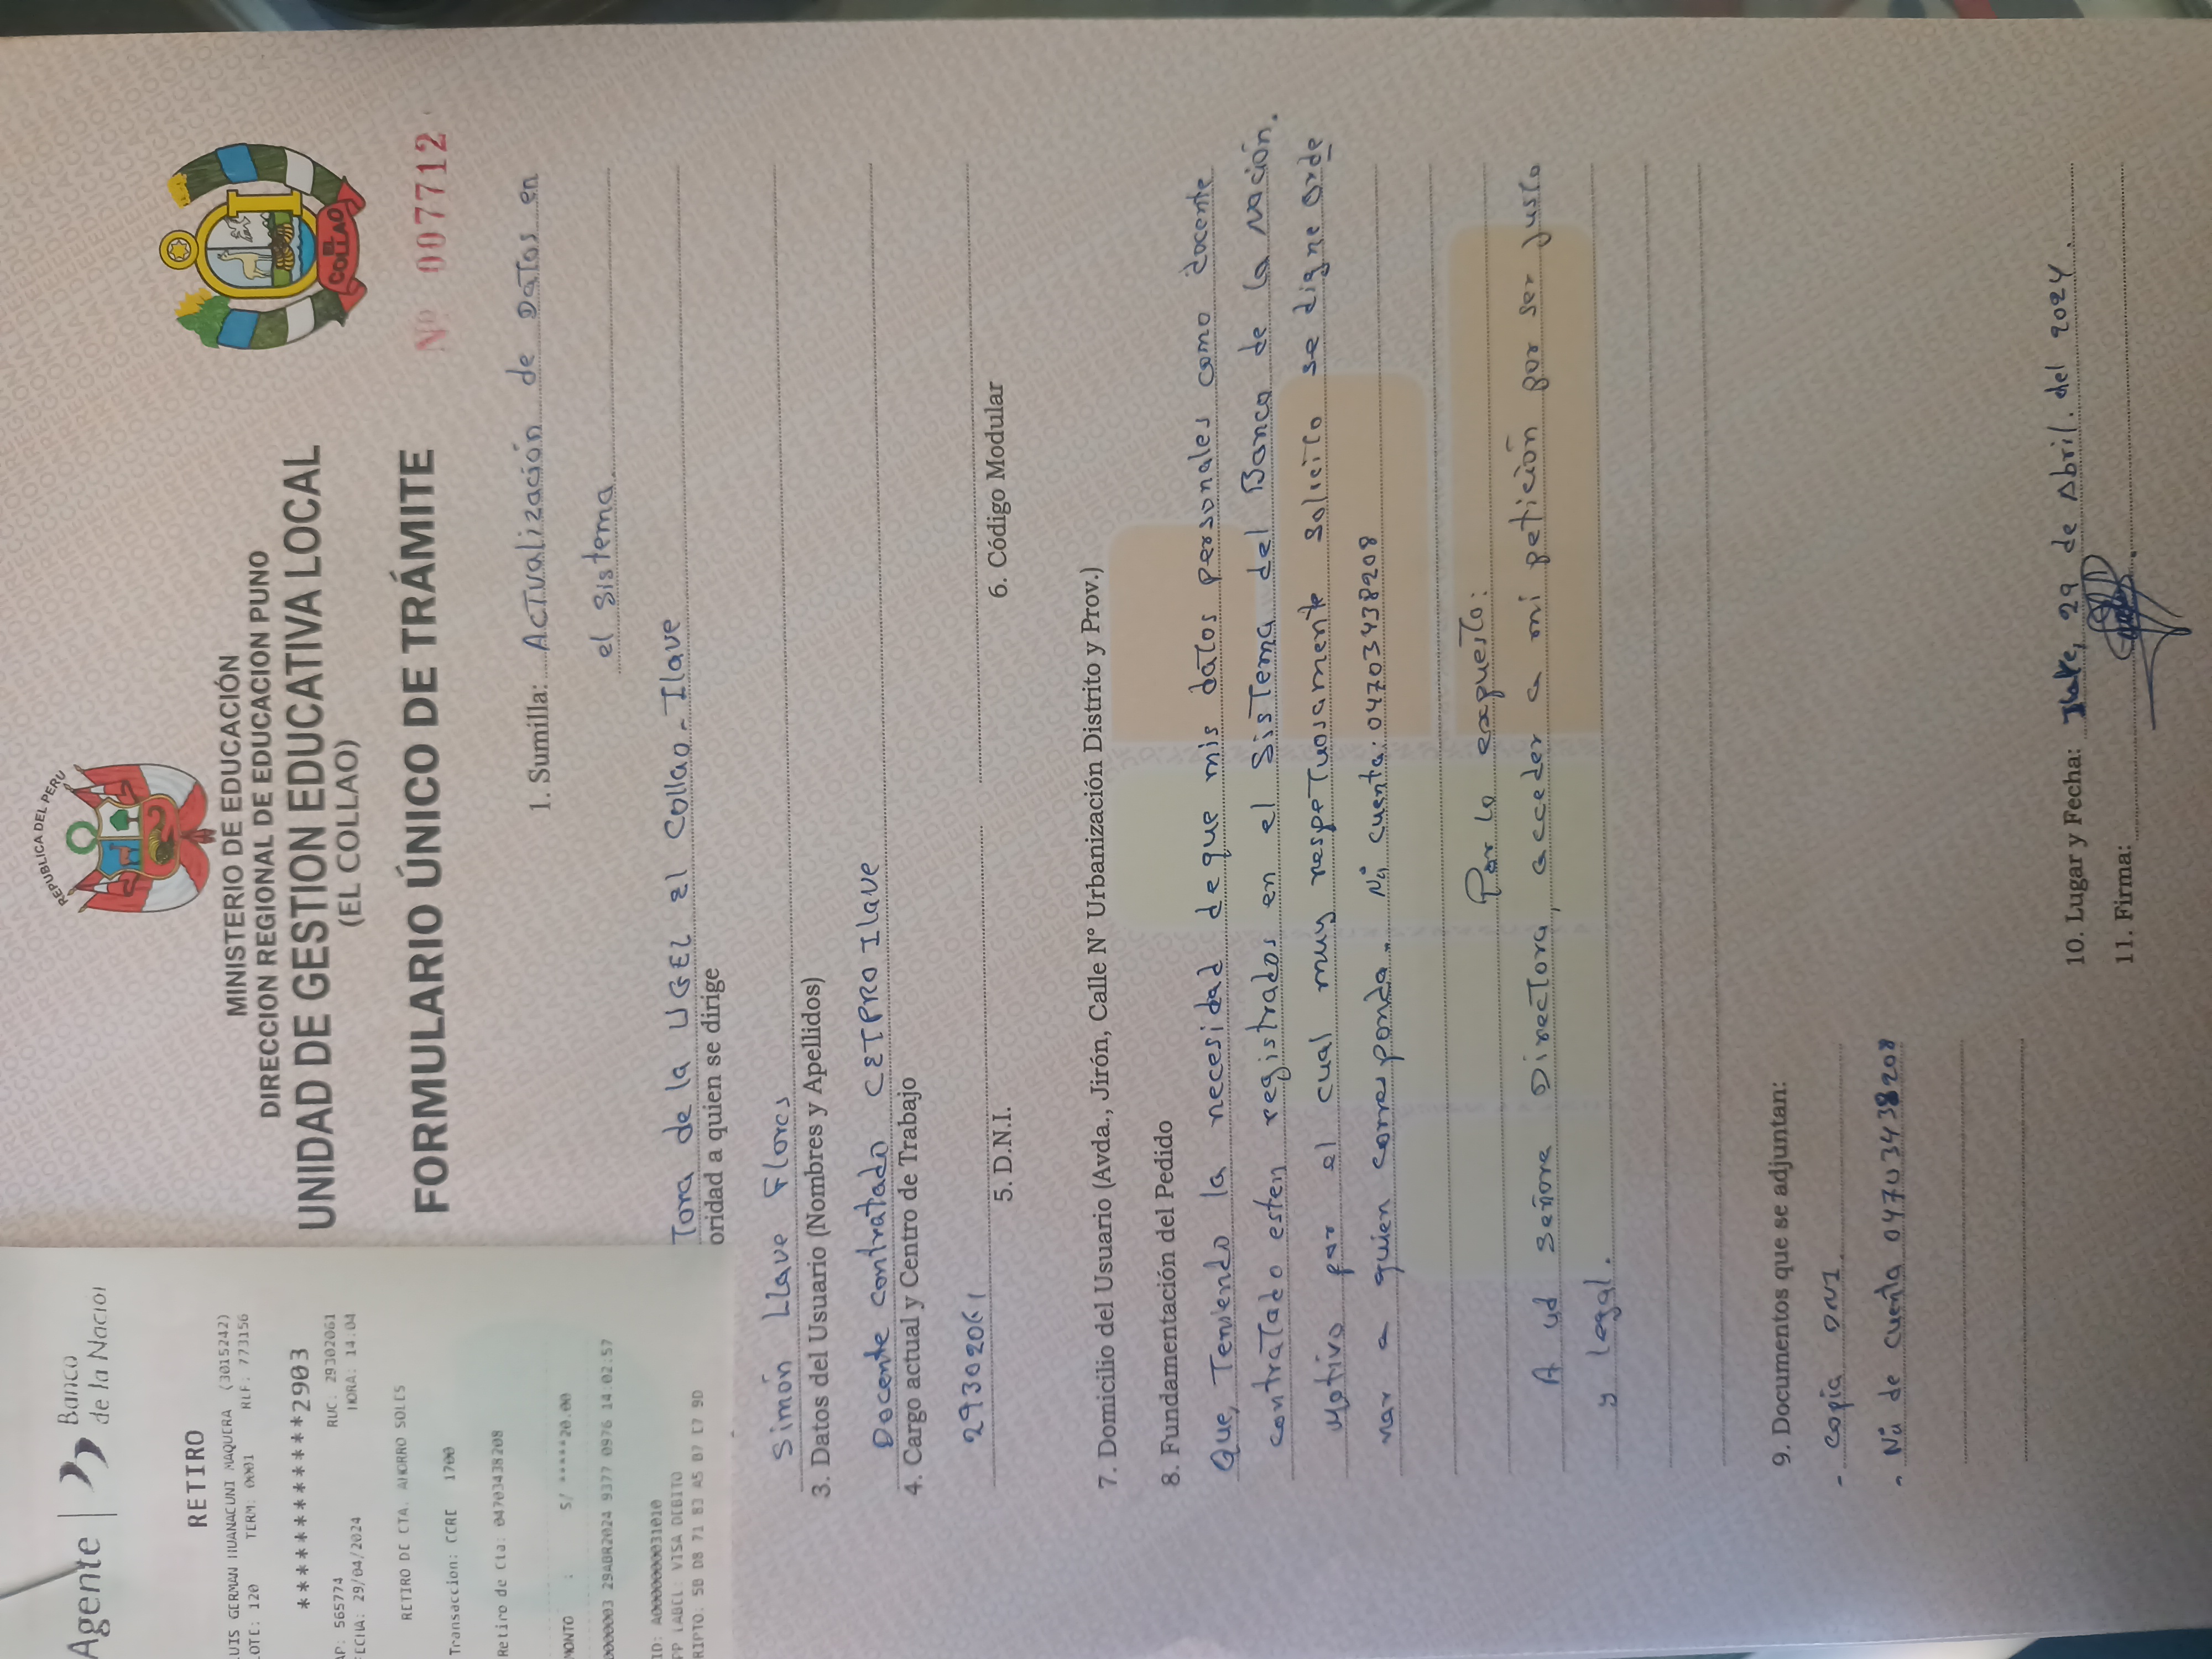 Agente | Banco
de la Nación
RETIRO
LUIS GERMAN HUANACUNI MAQUERA (3015242)
LOTE: 120 TERM: 0001 REF: 773156
************2903
AP: 565774 RUC: 29302061
FECHA: 29/04/2024 HORA: 14:04
RETIRO DE CTA. AHORRO SOLES
Transaccion: CCRE 1700
Retiro de Cta: 04703438208
MONTO : S/ *****20.00
0000003 29ABR2024 9377 0976 14:02:57
ID: A0000000031010
PP LABEL: VISA DEBITO
RIPTO: 5B D8 71 83 A5 B7 C7 9D
REPUBLICA DEL PERU
EL
COLLAO
MINISTERIO DE EDUCACIÓN
DIRECCION REGIONAL DE EDUCACION PUNO
UNIDAD DE GESTION EDUCATIVA LOCAL
(EL COLLAO)
FORMULARIO ÚNICO DE TRÁMITE
Nº 007712
1. Sumilla: Actualización de Datos en
el Sistema.
Tora de la UGEL el Collao - Ilave
oridad a quien se dirige
Simón Llave Flores
3. Datos del Usuario (Nombres y Apellidos)
Docente contratado CETPRO Ilave
4. Cargo actual y Centro de Trabajo
29302061
5. D.N.I. 6. Código Modular
7. Domicilio del Usuario (Avda., Jirón, Calle N° Urbanización Distrito y Prov.)
8. Fundamentación del Pedido
Que, Teniendo la necesidad de que mis datos personales como docente
contratado esten registrados en el Sistema del Banco de la Nación.
Motivo por el cual muy respetuosamente solicito se digne orde
nar a quien corresponda.. Nº cuenta: 04703438208
Por lo expuesto:
A ud señora Directora, acceder a mi petición por ser justo
y legal.
9. Documentos que se adjuntan:
- Copia DNI.
- Nº de cuenta 04703438208
10. Lugar y Fecha: Ilave, 29 de Abril. del 2024
11. Firma: